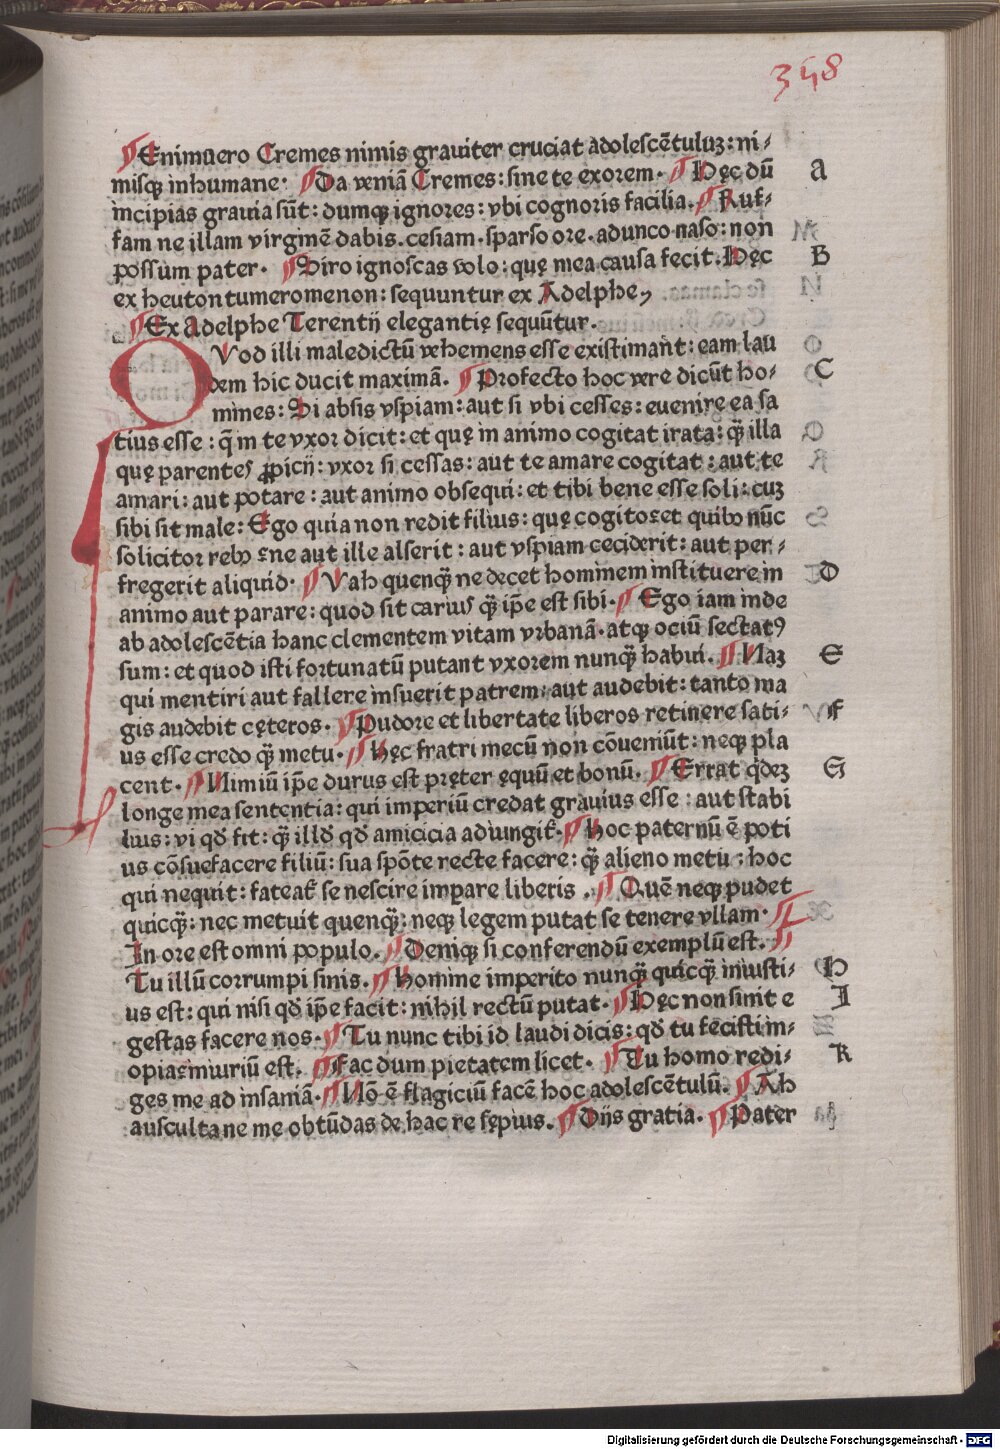 358
¶Enimuero Cremes nimis grauiter cruciat adolescẽtuluʒ: ni⸗
misqꝫ inhumane· ¶Da veniã Cremes: sine te exorem· ¶Hęc dũ A
incipias grauia sũt: dumqꝫ ignores: vbi cognoris facilia. ¶Ruf⸗
fam ne illam virginẽ dabis. cesiam·sparso ore·adunco naso: non
possum pater· ¶Siro ignoscas volo: quę mea causa fecit. Hęc B
ex heutontumeromenon: sequuntur ex Adelphe,
¶Ex Adelphe Terentij elegantię sequũtur.
QVod illi maledictũ vehemens esse existimant: eam lau
dem hic ducit maximã. ¶Profecto hoc vere dicũt ho⸗ C
mines: Si absis vspiam: aut si vbi cesses: euenire ea sa
tius esse: q̃ in te vxor dicit: et quę in animo cogitat irata: q̃ꝫ illa
quę parentes ꝓpicij: vxor si cessas: aut te amare cogitat: aut te
amari: aut potare: aut animo obsequi: et tibi bene esse soli: cuʒ
sibi sit male: Ego quia non redit filius: quę cogito: et quibꝰ nũc
solicitor rebꝰ: ne aut ille alserit: aut vspiam ceciderit: aut per⸗
fregerit aliquid· ¶Vah quenq̃ꝫ ne decet hominem instituere in D
animo aut parare: quod sit carius q̃ꝫ ip̃e est sibi· ¶Ego iam inde
ab adolescẽtia hanc clementem vitam vrbanã·atqꝫ ociũ sectatꝰ
sum: et quod isti fortunatũ putant vxorem nunq̃ꝫ habui. ¶Naʒ E
qui mentiri aut fallere insuerit patrem: aut audebit: tanto ma
gis audebit cęteros· ¶Pudore et libertate liberos retinere sati⸗ F
us esse credo q̃ꝫ metu· ¶Hęc fratri mecũ non cõueniũt: neqꝫ pla
cent· ¶Nimiũ ip̃e durus est pręter ęquũ et bonũ. ¶Errat qͥdeʒ G
longe mea sententia: qui imperiũ credat grauius esse: aut stabi
lius: vi qđ fit: q̃ꝫ illđ qđ amicicia adiungit᷑· ¶Hoc paternũ ẽ poti
us cõsuefacere filiũ: sua spõte recte facere: q̃ꝫ alieno metu: hoc
qui nequit: fateat᷑ se nescire imꝑare liberis. ¶Quẽ neqꝫ pudet
quicq̃ꝫ: nec metuit quenq̃ꝫ: neqꝫ legem putat se tenere vllam· ¶
In ore est omni populo. ¶Deniqꝫ si conferendũ exemplũ est. ¶
Tu illũ corrumpi sinis. ¶Homine imperito nunq̃ꝫ quicq̃ꝫ iniusti⸗ H
us est: qui nisi qđ ip̃e facit: nihil rectũ putat· ¶Hęc non sinit e I
gestas facere nos· ¶Tu nunc tibi id laudi dicis: qđ tu fecisti in⸗
opia: iniuriũ est. ¶Fac dum pietatem licet· ¶Tu homo redi⸗ K
ges me ad insaniã· ¶Nõ ẽ flagiciũ facẽ hoc adolescẽtulũ. ¶Ah
ausculta ne me obtũdas de hac re sępius. ¶Dijs gratia. ¶Pater
Digitalisierung gefördert durch die Deutsche Forschungsgemeinschaft - DFG